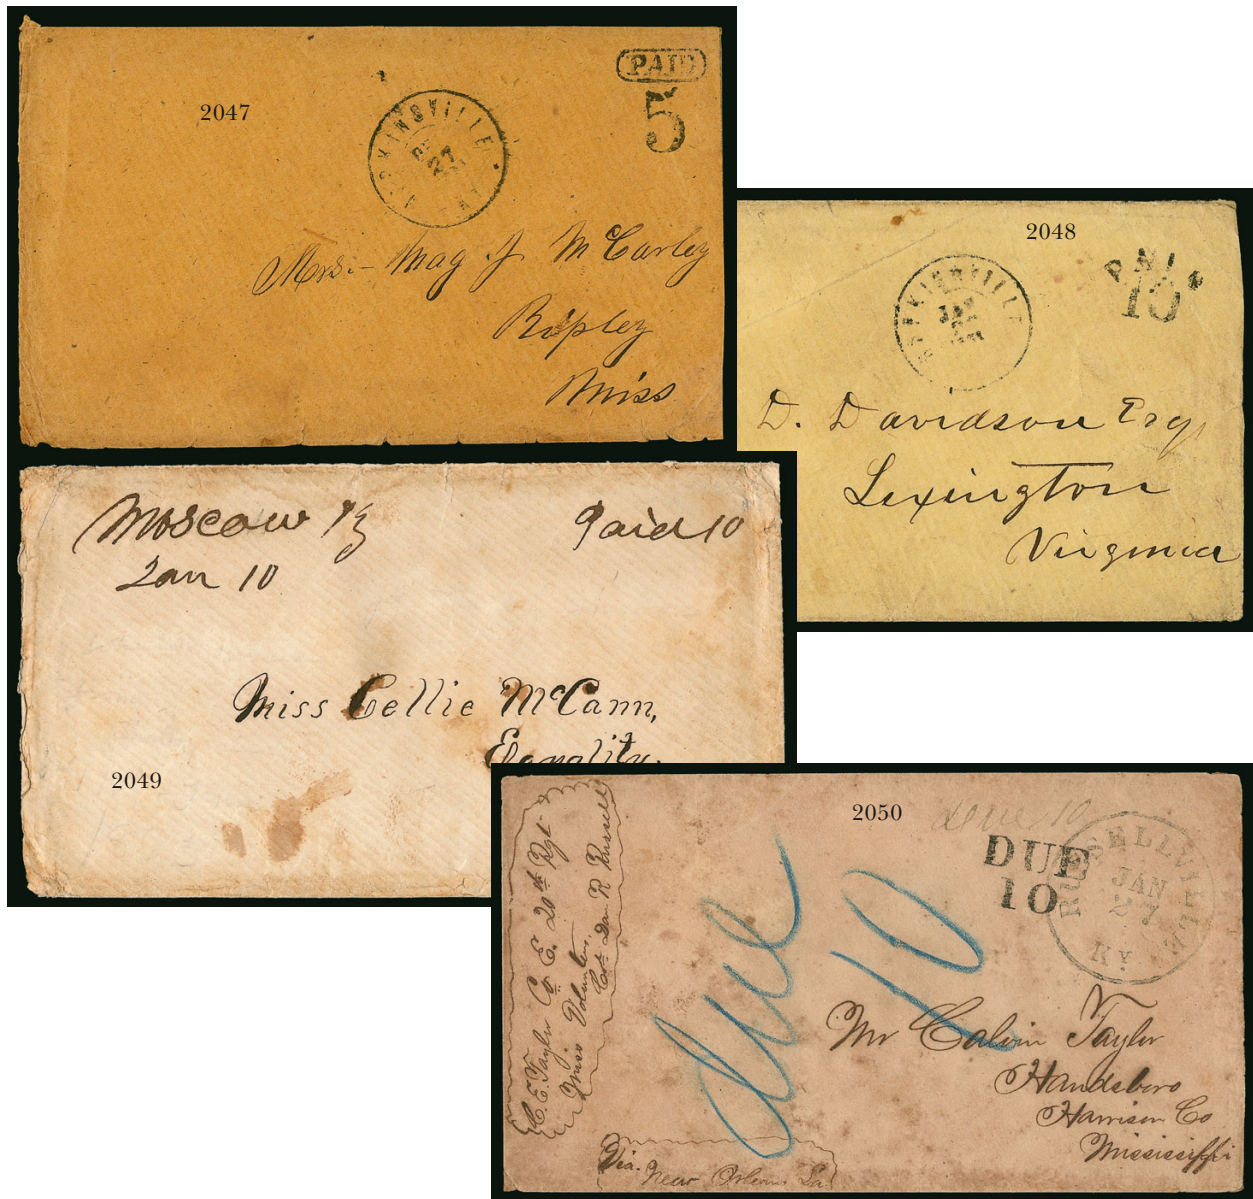 2047
HOPKINSVILLE
DEC
27
KY
PAID
5
Mrs. Mag J McCarley
Ripley
Miss
2048
HOPKINSVILLE
JAN
PAID
10
D. Davidson Esq
Lexington
Virginia
Moscow Ky
Jan 10
Paid 10
Miss Cellie McCann,
Equality.
2049
2050
due 10
DUE
10
RUSSELLVILLE
JAN
27
KY
due 10
C. E. Taylor Co E. 20th Rgt
Miss Volunteers,
Col. Dn R Russell
Mr Calvin Taylor
Handsboro
Harrison Co
Mississippi
Via. New Orleans La